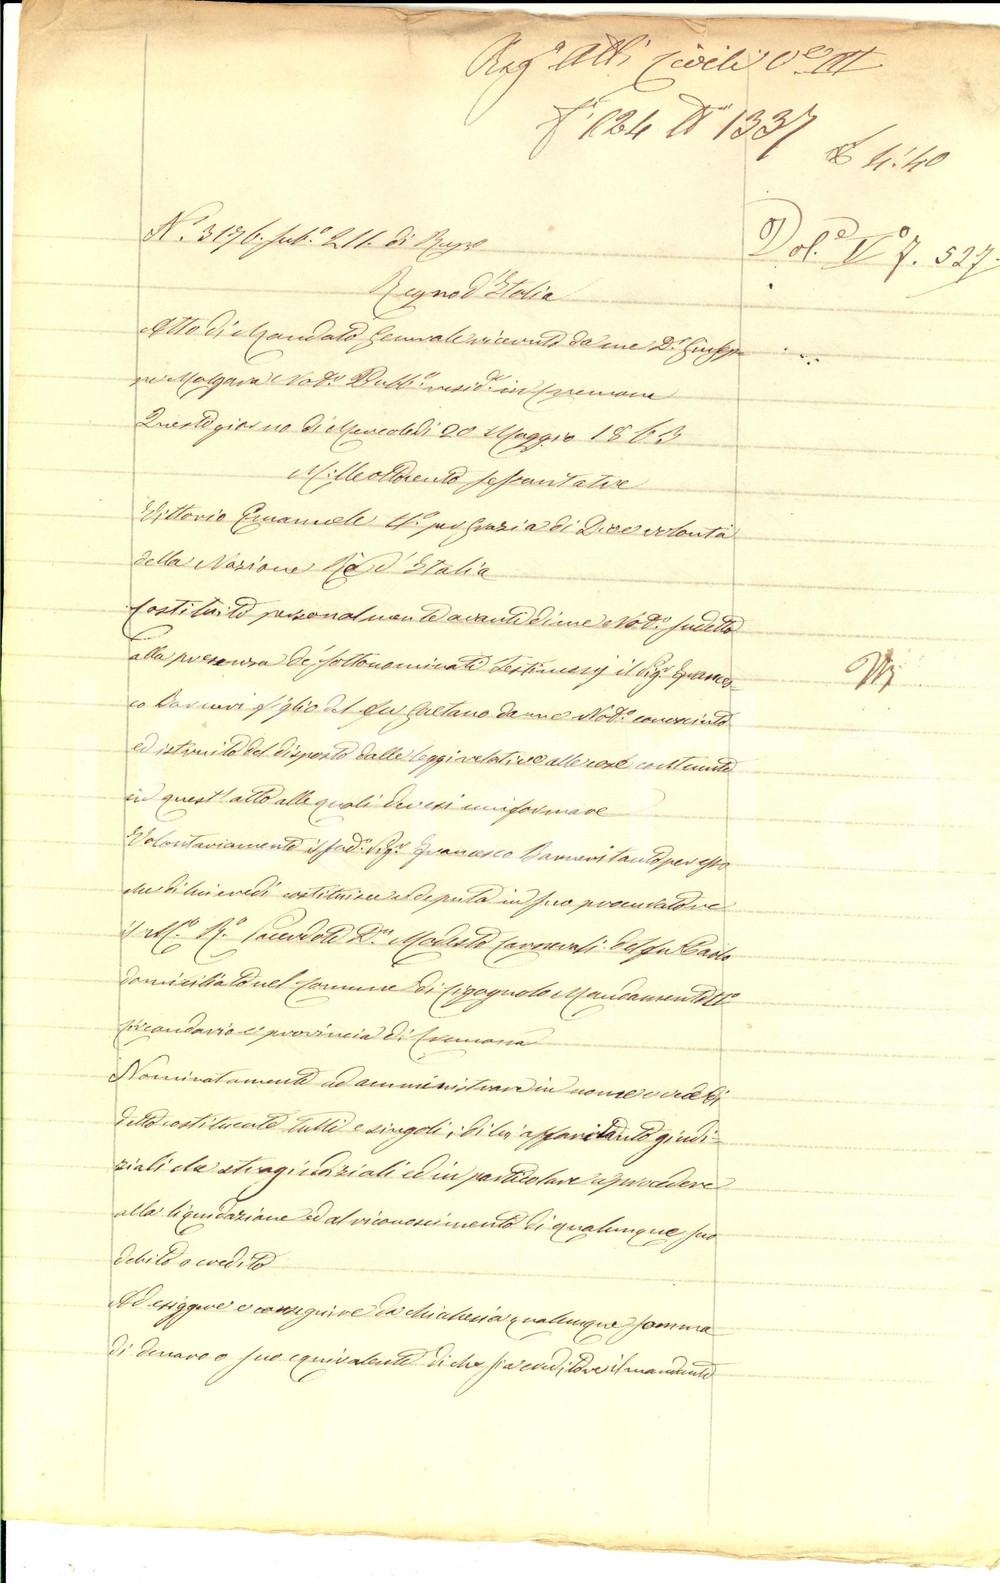 Reg.o Atti Civili V.e III
f.o 124 N.o 1337
£ 4:40
Vol.e V.o f. 527.
N.o 3176. sub.o 211. di Rep.o
Regno d'Italia
Atto di Mandato Generale ricevuto da me D.r Giusep-
pe Molgara Not.o Pubb.o resid.e in Cremona
Questo giorno di Mercoledì 20 Maggio 1863
Milleottocento sessantatre
Vittorio Emanuele II.o per grazia di Dio e volontà
della Nazione Rè d'Italia
Costituito personalmente avanti di me Not.o sudetto
alla presenza de' sottonominati Testimonj il Sig.r Frances-
co figlio del fu Gaetano da me Not.o conosciuto
ed istruito del disposto dalle leggi relative alle cose contenute
in quest'atto alle quali devesi uniformare
Volontariamente il sud.o Sig.r Francesco tanto per esso
che di lui eredi costituisce e deputa in suo procuratore
il M.o R.o Sacerdote D.n Modesto del fu Paolo
domiciliato nel Comune di Cigognolo Mandamento II.o
Circondario e provincia di Cremona
Nominatamente ad amministrare in nome e vece di
detto costituente tutti e singoli i di lui affari tanto giudi-
ziali che stragiudiziali ed in particolare a procedere
alla liquidazione ed al riconoscimento di qualunque suo
debito o credito
Ad esiggere e conseguire da chichesia qualunque somma
di denaro o suo equivalente di che sia creditore il mandante